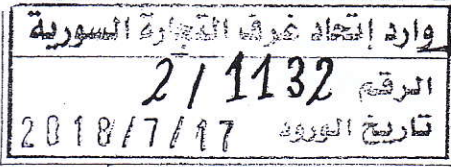 وارد إتحاد غرف التجارة السورية
الرقم 2/1132
تاريخ الورود 2018/7/17